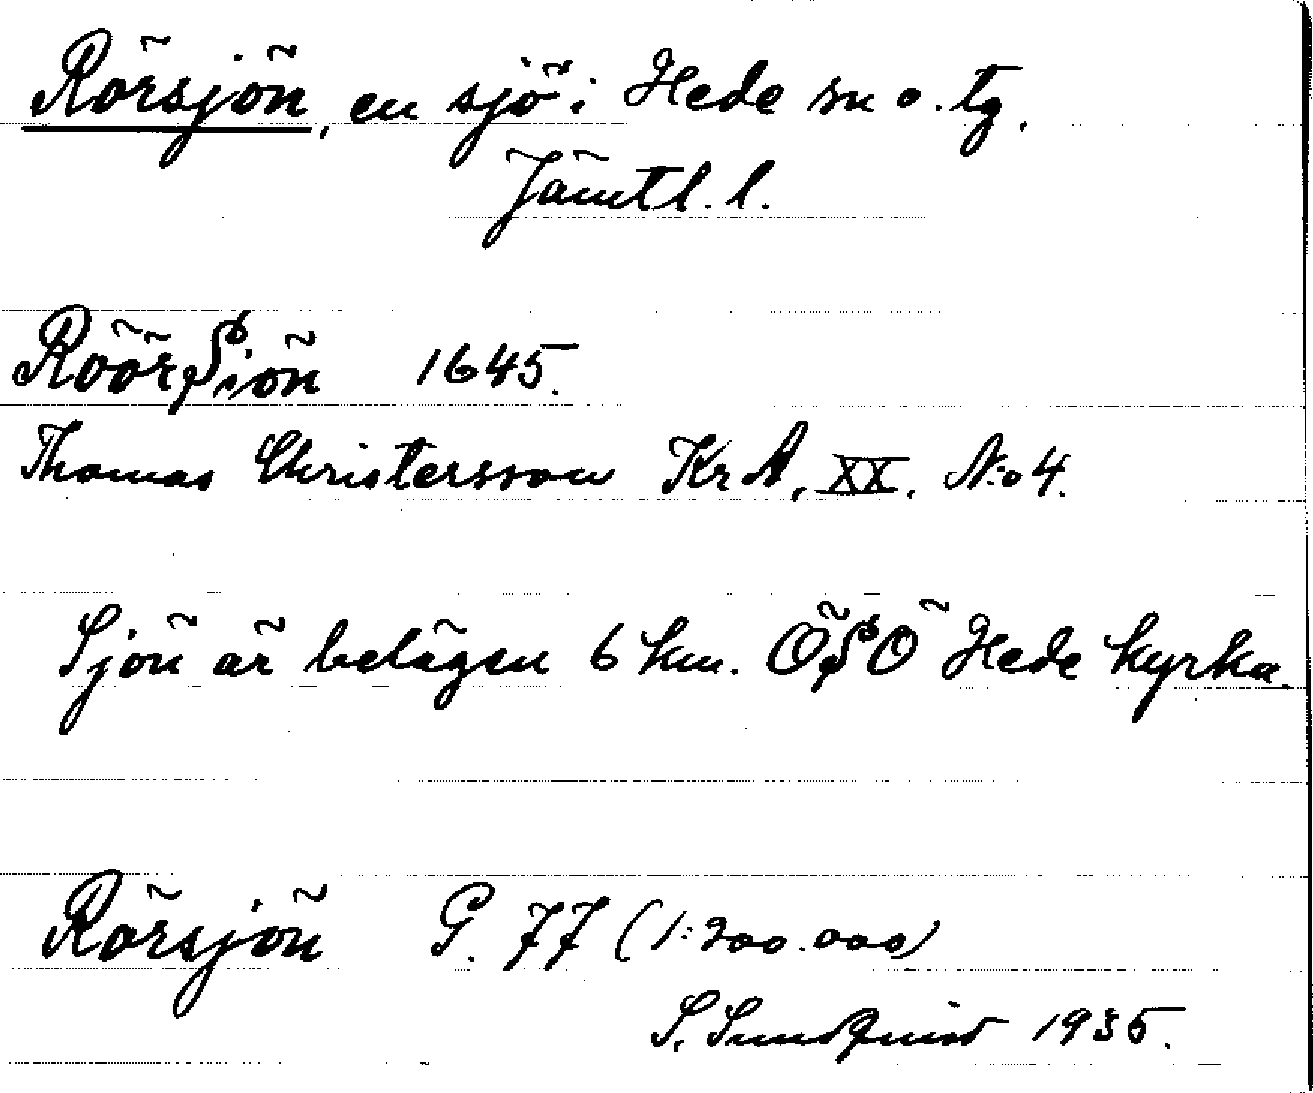 Rörsjön, en sjö i Hede sn o. tg.
Jämtl. l.
RöörSiön 1645.
Thomas Christersson KrA, XX, N:o 4.
Sjön är belägen 6 km. ÖSÖ Hede kyrka.
Rörsjön G. 77 (1:200.000)
S. Sundquist 1935.